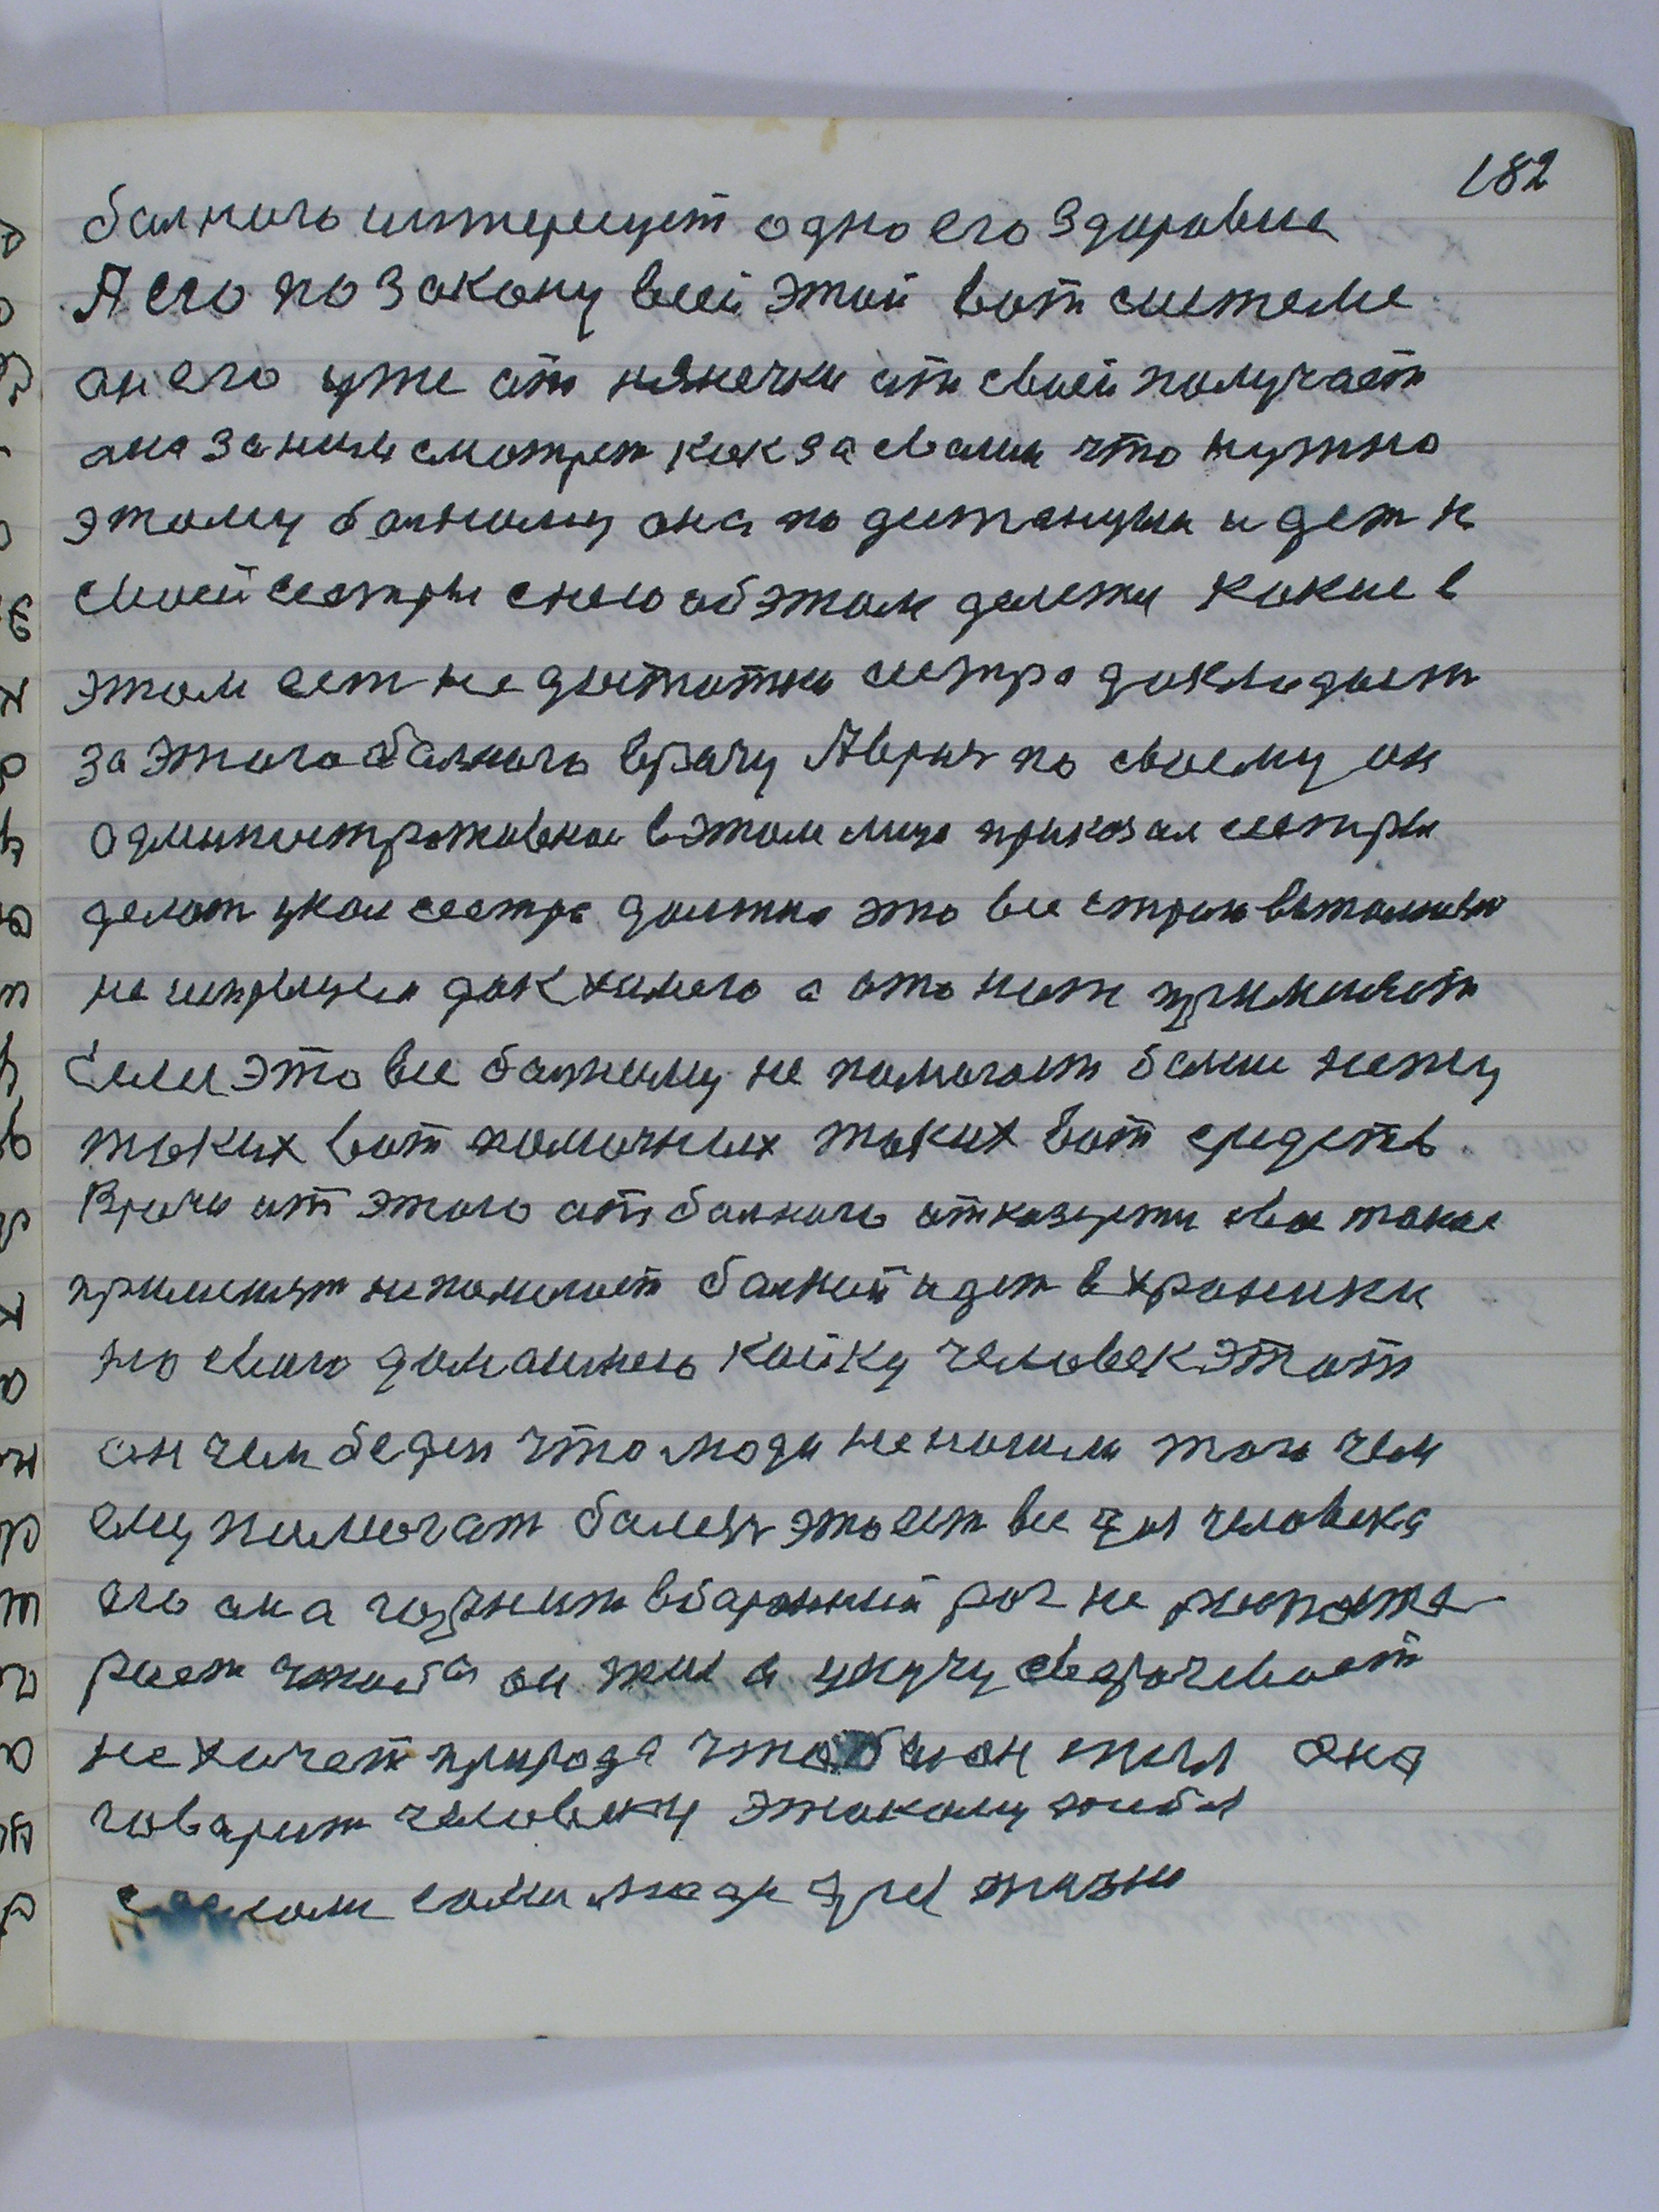 182
балного интересует одно его здаровие
А его по закону всей этой вот системе
он его уже от нянечки от своей получает
она за ним смотрет как за своим что нужно
этому балному она по дистанции идет к
своей сестры с нею об этом делеть какие в
этом ест не достатки сестра докладает
за этого балного врачу А врач по своему он
административное в этом лицо приказал сестры
делат укол сестра должна это все строго выполнять
не интересуеш как химею а ото нож применяют
Если это все балному не помогает более нету
таких вот помочных таких вот средств
Врачи от этого от балного отказуется свое такое
применят не помогает балной идет в хроники
на свою домашнею койку человек этот
он чем беден что люди не нашли того чем
ему помогат балезн это ест все для человека
его она годнит в бараний рог не
рает чтобы он жил в кучу сварачевает
не хочет природа чтобы он жил она
говарит человеку этакому
сами люди для жизни